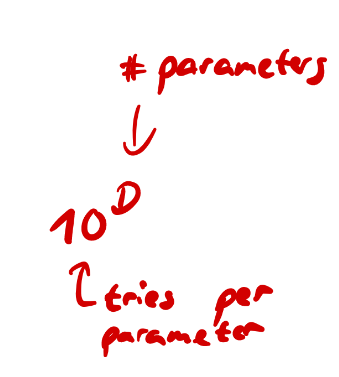 # parameters
10^D
tries per
parameter